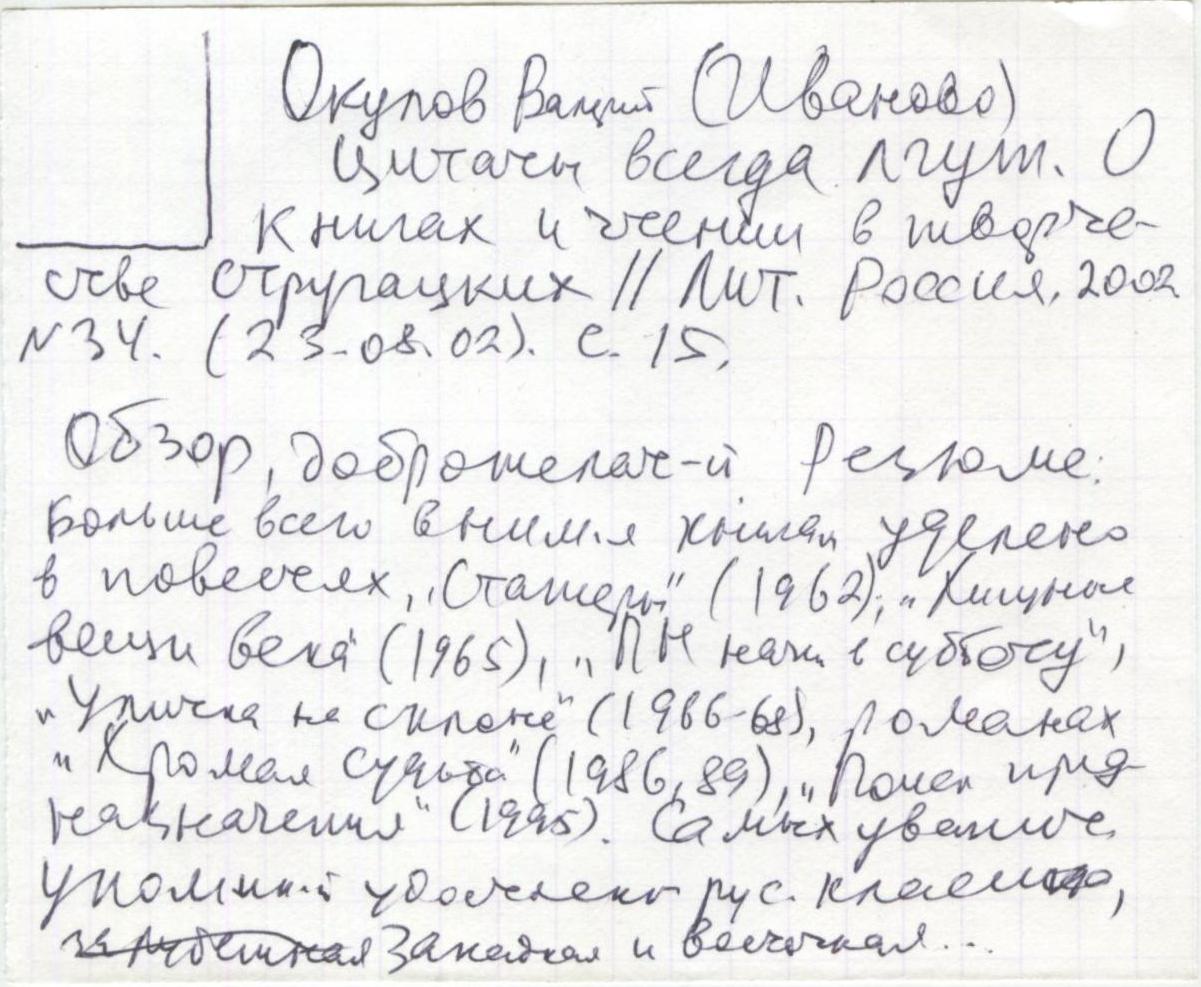 Окулов Валерий (Иваново)
Цитаты всегда лгут. О
книгах и чтении в творче-
стве Стругацких // Лит. Россия. 2002
N 34. (23.08.02). С. 15.
Обзор, доброжелат-й Резюме:
Больше всего вним-я книгам уделено
в повестях „Стажеры" (1962), „Хищные
вещи века" (1965), „ПН начин в субботу",
„Улитка на склоне" (1966-68), романах
„Хромая судьба" (1986, 89), „Поиск пред-
назначения" (1995). Самых уважит.
упоминий удостоена рус. классика,
западная и восточная...